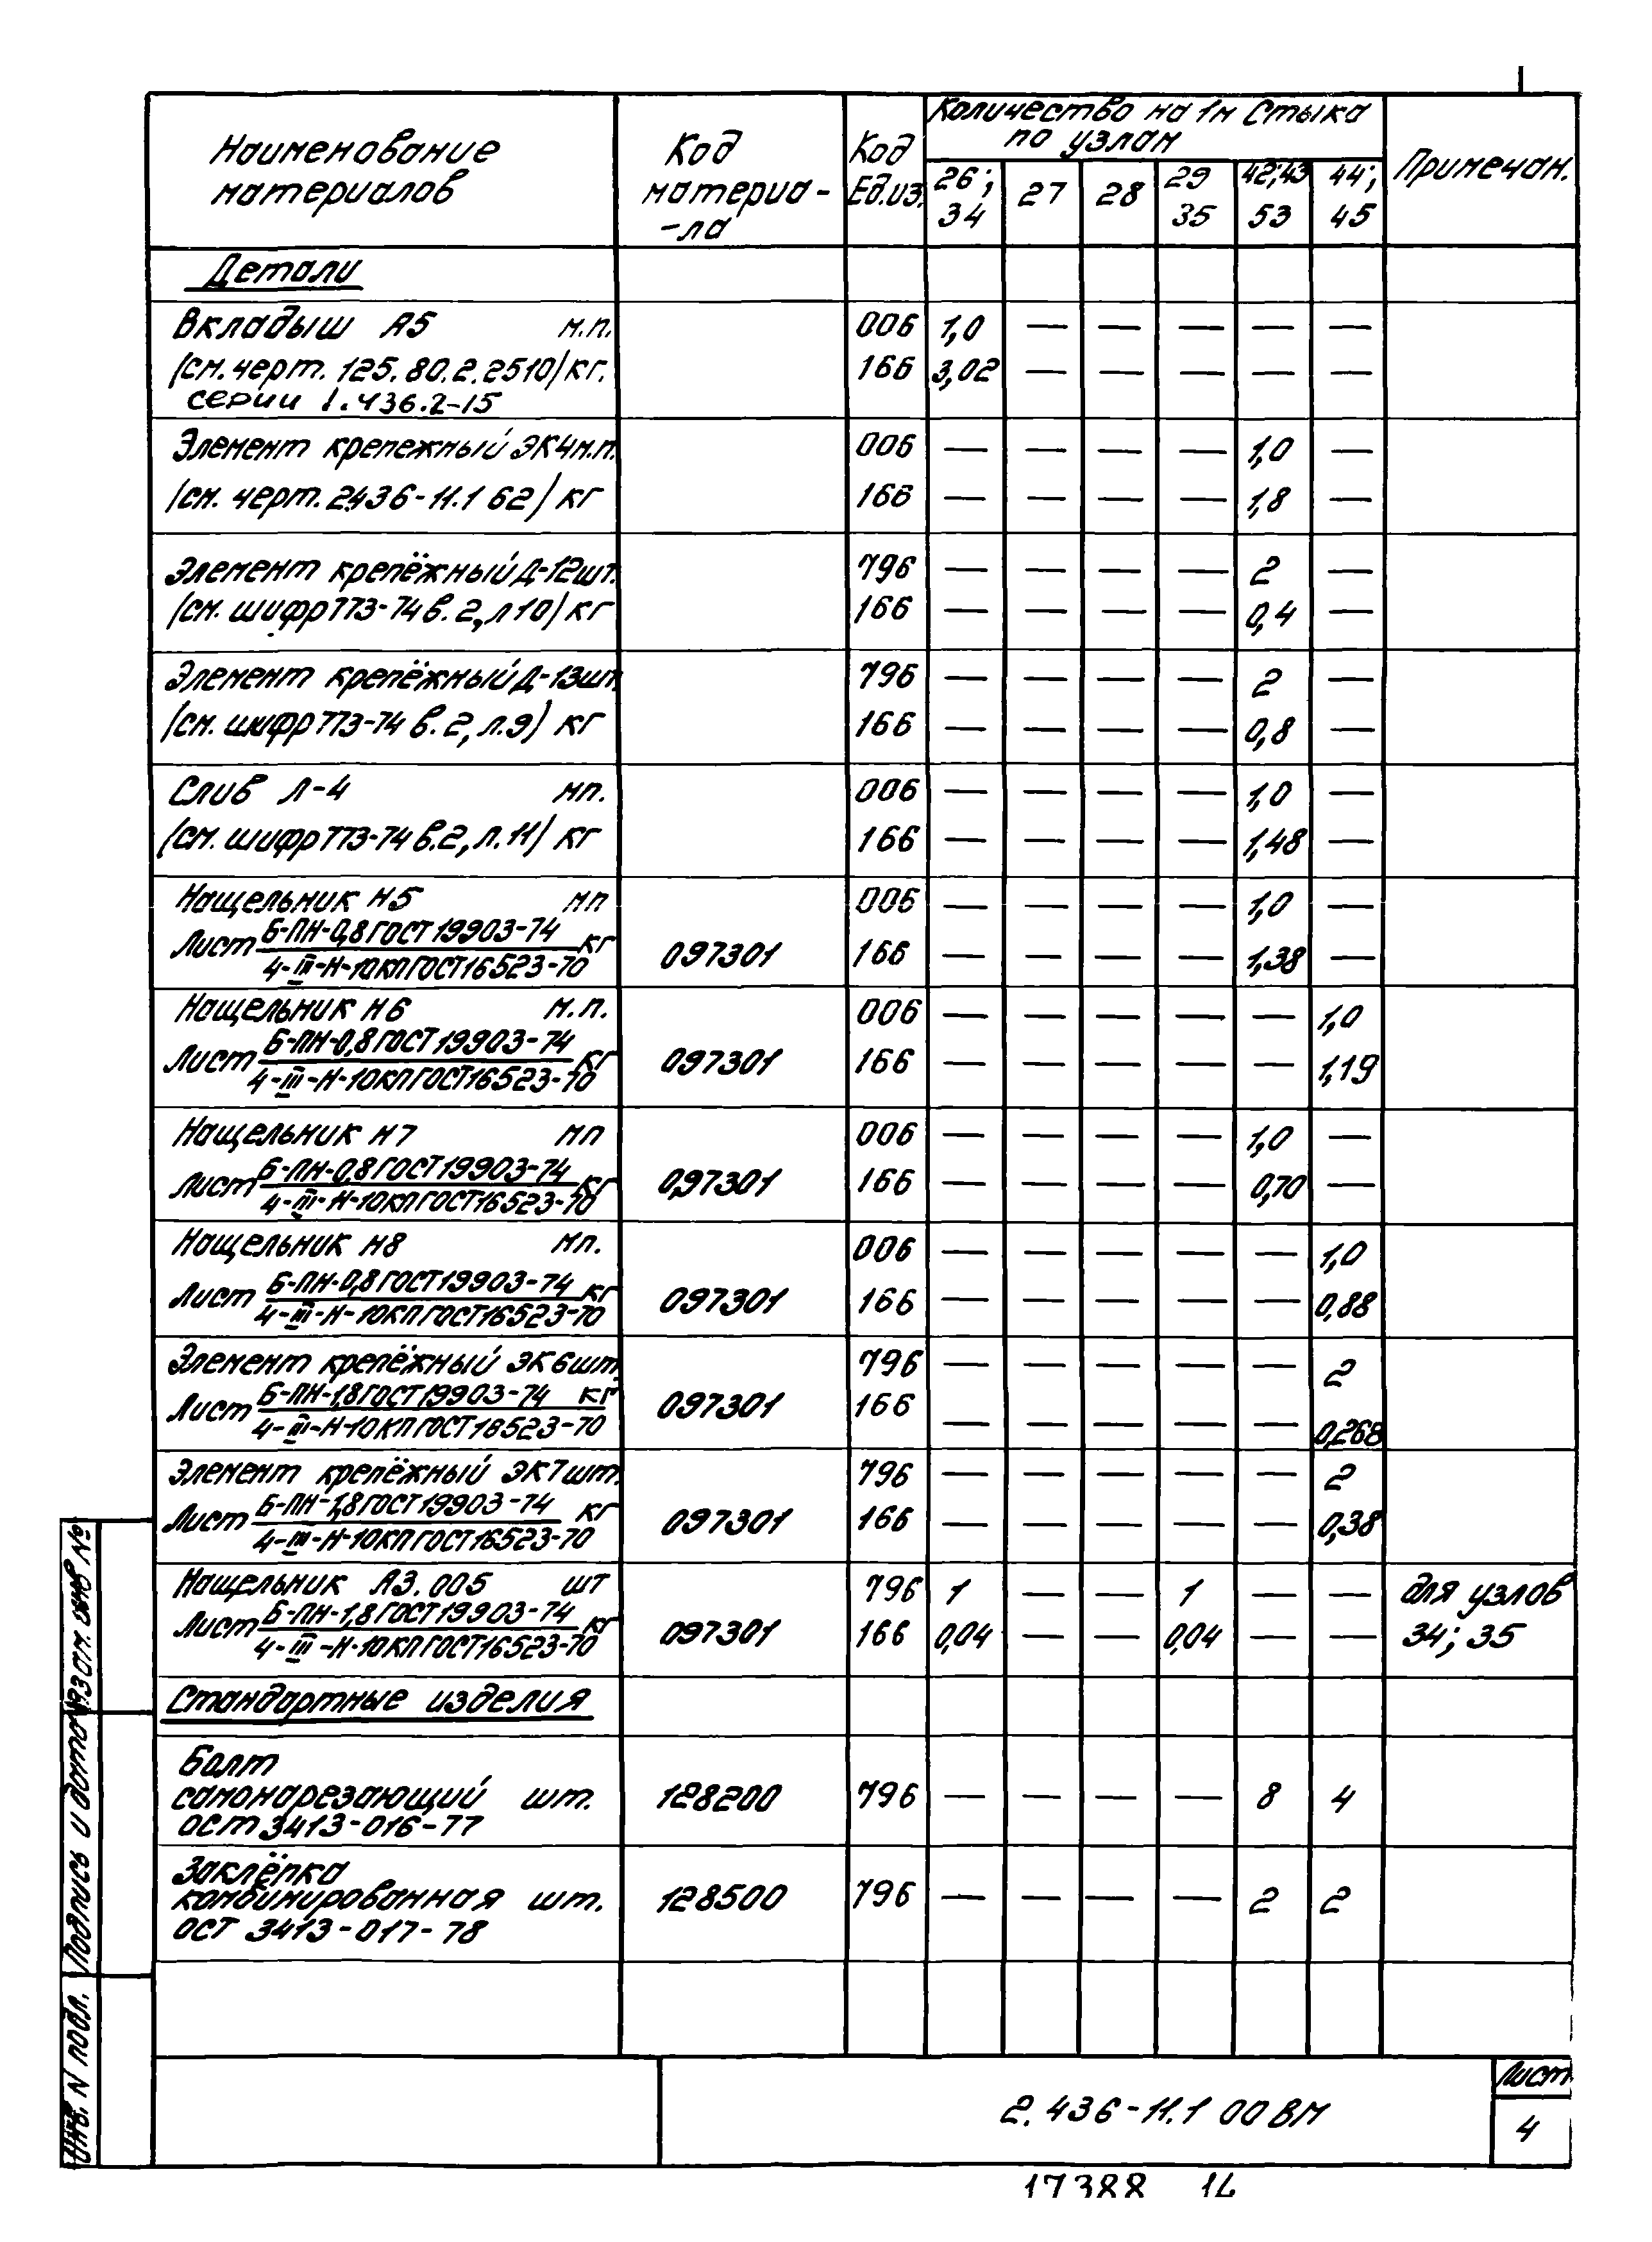 Наименование материалов | Код материа--ла | Код Ед.из. | Количество на 1м Стыка по узлам | Примечан.
26; 34 | 27 | 28 | 29 35 | 42;43 53 | 44; 45
Детали
Вкладыш А5 м.п. | 006 | 1,0 | — | — | — | — | —
/см. черт. 125.80.2.2510/ кг. | 166 | 3,02 | — | — | — | — | —
серии 1.436.2-15
Элемент крепежный ЭК4 м.п. | 006 | — | — | — | — | 1,0 | —
/см. черт. 2.436-11.1 62/ кг | 166 | — | — | — | — | 1,8 | —
Элемент крепёжный Д-12 шт. | 796 | — | — | — | — | 2 | —
/см. шифр 773-74 в.2, л 10/ кг | 166 | — | — | — | — | 0,4 | —
Элемент крепёжный Д-13 шт. | 796 | — | — | — | — | 2 | —
/см. шифр 773-74 в.2, л.9) кг | 166 | — | — | — | — | 0,8 | —
Слив Л-4 мп. | 006 | — | — | — | — | 1,0 | —
(см. шифр 773-74 в.2, л.11/ кг | 166 | — | — | — | — | 1,48 | —
Нащельник Н5 мп | 006 | — | — | — | — | 1,0 | —
Лист Б-ПН-0,8 ГОСТ 19903-74 кг | 097301 | 166 | — | — | — | — | 1,38 | —
4-III-Н-10кп ГОСТ 16523-70
Нащельник Н6 м.п. | 006 | — | — | — | — | — | 1,0
Лист Б-ПН-0,8 ГОСТ 19903-74 кг | 097301 | 166 | — | — | — | — | — | 1,19
4-III-Н-10кп ГОСТ 16523-70
Нащельник Н7 мп | 006 | — | — | — | — | 1,0 | —
Лист Б-ПН-0,8 ГОСТ 19903-74 кг | 0,97301 | 166 | — | — | — | — | 0,70 | —
4-III-Н-10кп ГОСТ 16523-70
Нащельник Н8 мп. | 006 | — | — | — | — | — | 1,0
Лист Б-ПН-0,8 ГОСТ 19903-74 кг | 097301 | 166 | — | — | — | — | — | 0,88
4-III-Н-10кп ГОСТ 16523-70
Элемент крепёжный ЭК6 шт. | 796 | — | — | — | — | — | 2
Лист Б-ПН-1,8 ГОСТ 19903-74 кг | 097301 | 166 | — | — | — | — | — | 0,268
4-III-Н-10кп ГОСТ 16523-70
Элемент крепёжный ЭК7 шт. | 796 | — | — | — | — | — | 2
Лист Б-ПН-1,8 ГОСТ 19903-74 кг | 097301 | 166 | — | — | — | — | — | 0,38
4-III-Н-10кп ГОСТ 16523-70
Нащельник А3.005 шт | 796 | 1 | — | — | 1 | — | — | для узлов
Лист Б-ПН-1,8 ГОСТ 19903-74 кг | 097301 | 166 | 0,04 | — | — | 0,04 | — | — | 34; 35
4-III-Н-10кп ГОСТ 16523-70
Стандартные изделия
Болт
самонарезающий шт. | 128200 | 796 | — | — | — | — | 8 | 4
ОСТ 3413-016-77
Заклёпка
комбинированная шт. | 128500 | 796 | — | — | — | — | 2 | 2
ОСТ 3413-017-78
Взам. инв №
Подпись и дата
Инв. N подл.
2.436-11.1 00 ВМ
Лист
4
17388 14